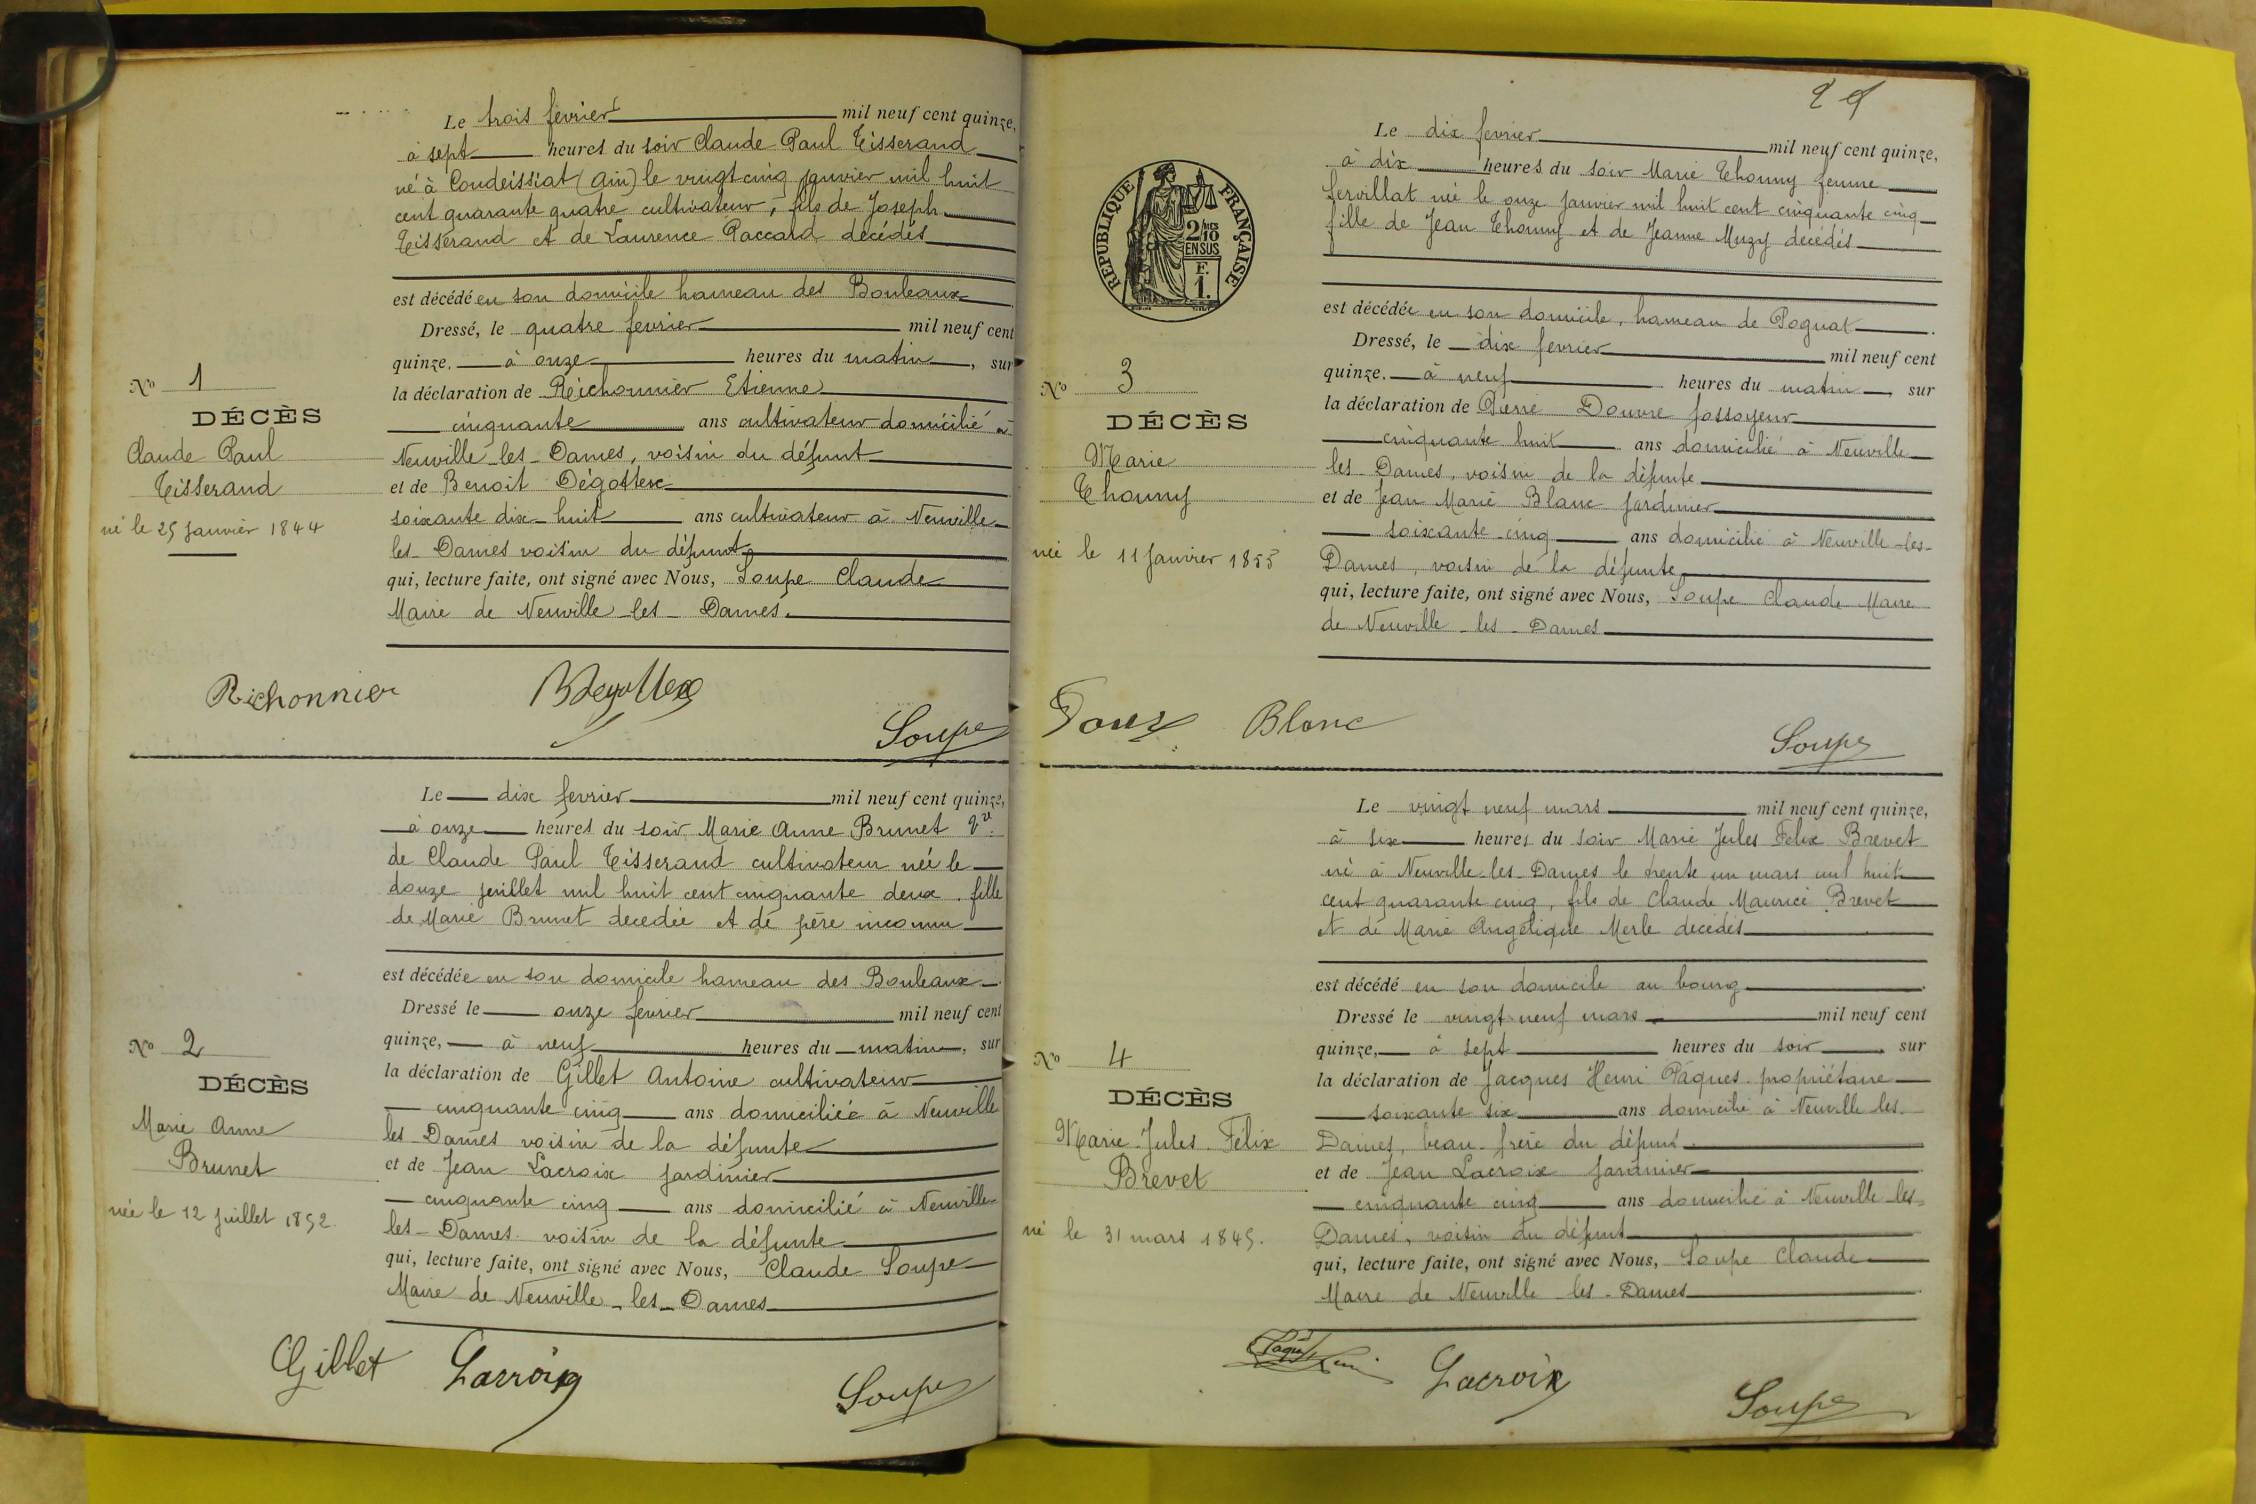 Le trois février mil neuf cent quinze,
à sept heures du soir Claude Paul Tisserand
né à Condeissiat (Ain) le vingt cinq janvier mil huit
cent quarante quatre cultivateur, fils de Joseph
Tisserand et de Laurence Paccard décédés
est décédé en son domicile hameau des Bouleaux
Dressé, le quatre fevrier mil neuf cent
quinze, à onze heures du matin, sur
la déclaration de Réichonnier Etienne
cinquante ans cultivateur domicilié à
Neuville-les-Dames, voisin du défunt
et de Benoit Dégottex
soixante dix-huit ans cultivateur à Neuville
les-Dames voisin du défunt
qui, lecture faite, ont signé avec Nous, Soupe Claude
Maire de Neuville-les-Dames.
No 1
DÉCÈS
Claude Paul
Tisserand
né le 25 Janvier 1844
Richonnier BDegottex
Soupe
Le dix fevrier mil neuf cent quinze,
à onze heures du soir Marie Anne Brunet Vve
de Claude Paul Tisserand cultivateur née le
douze juillet mil huit cent cinquante deux. fille
de Marie Brunet decedée et de père inconnu
est décédée en son domicile hameau des Bouleaux.
Dressé le onze fevrier mil neuf cent
quinze, à neuf heures du matin, sur
la déclaration de Gillet Antoine cultivateur
cinquante cinq ans domiciliée à Neuville
les-Dames voisin de la défunte
et de Jean Lacroix jardinier
cinquante cinq ans domicilié à Neuville-
les-Dames. voisin de la défunte
qui, lecture faite, ont signé avec Nous, Claude Soupe
Maire de Neuville-les-Dames
No 2
DÉCÈS
Marie Anne
Brunet
née le 12 Juillet 1852.
Gillet Lacroix
Soupe
Le dix fevrier mil neuf cent quinze,
à dix heures du soir Marie Thomy femme
fervillat née le onze Janvier mil huit cent cinquante cinq
fille de Jean Thomy et de Jeanne Muzy décédés
REPUBLIQUE FRANÇAISE
2/10
EN SUS
F.
1.
est décédée en son domicile, hameau de Pognat.
Dressé, le dix fevrier mil neuf cent
quinze. à neuf heures du matin, sur
la déclaration de Pierre Douvre fossoyeur
cinquante huit ans domicilié à Neuville
les-Dames, voisin de la défunte
et de Jean Marie Blanc Jardinier
soixante-cinq ans domicilié à Neuville-les-
Dames, voisin de la défunte
qui, lecture faite, ont signé avec Nous, Soupe Claude Maire
de Neuville-les-Dames
No 3
DÉCÈS
Marie
Thomy
née le 11 Janvier 1855
Blanc
Soupe
Le vingt neuf mars mil neuf cent quinze,
à six heures du soir Marie Jules Felix Brevet
né à Neuville-les-Dames le trente un mars mil huit
cent quarante cinq, fils de Claude Maurice Brevet
et de Marie Angélique Merle décédés
est décédé en son domicile au bourg.
Dressé le vingt neuf mars mil neuf cent
quinze, à sept heures du soir, sur
la déclaration de Jacques Henri Pâques. propriétaire
soixante six ans domicilié à Neuville les-
Dames, beau-frère du défunt
et de Jean Lacroix jardinier
cinquante cinq ans domicilié à Neuville-les-
Dames, voisin du défunt
qui, lecture faite, ont signé avec Nous, Soupe Claude
Maire de Neuville-les-Dames
No 4
DÉCÈS
Marie-Jules-Félix
Brevet
né le 31 mars 1845.
Lacroix
Soupe